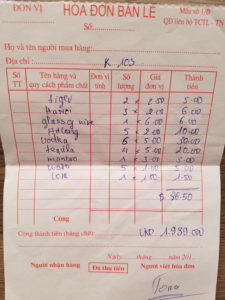 ĐƠN VỊ HÓA ĐƠN BÁN LẺ Mẫu số 1/B
Số: QĐ liên bộ TCTL - TN
Họ và tên người mua hàng:
Địa chỉ: R 103
Số TT Tên hàng và quy cách phẩm chất Đơn vị tính Số lượng Giá đơn vị Thành tiền
tiger 2 x 2.50 5.00
Hanoi 3 x 2.00 6.00
glass q wine 1 x 6.00 6.00
5 x 2.00 10.00
vodka 6 x 5.00 30.00
tequila 4 x 5.00 20.00
1 x 3.00 3.00
5 x 1.00 5.00
1 x 1.50
$ 86.50
Cộng
Cộng thành tiền (bằng chữ): VND 1.989.000
Ngày tháng năm 201
Người nhận hàng Đã thu tiền Người viết hóa đơn